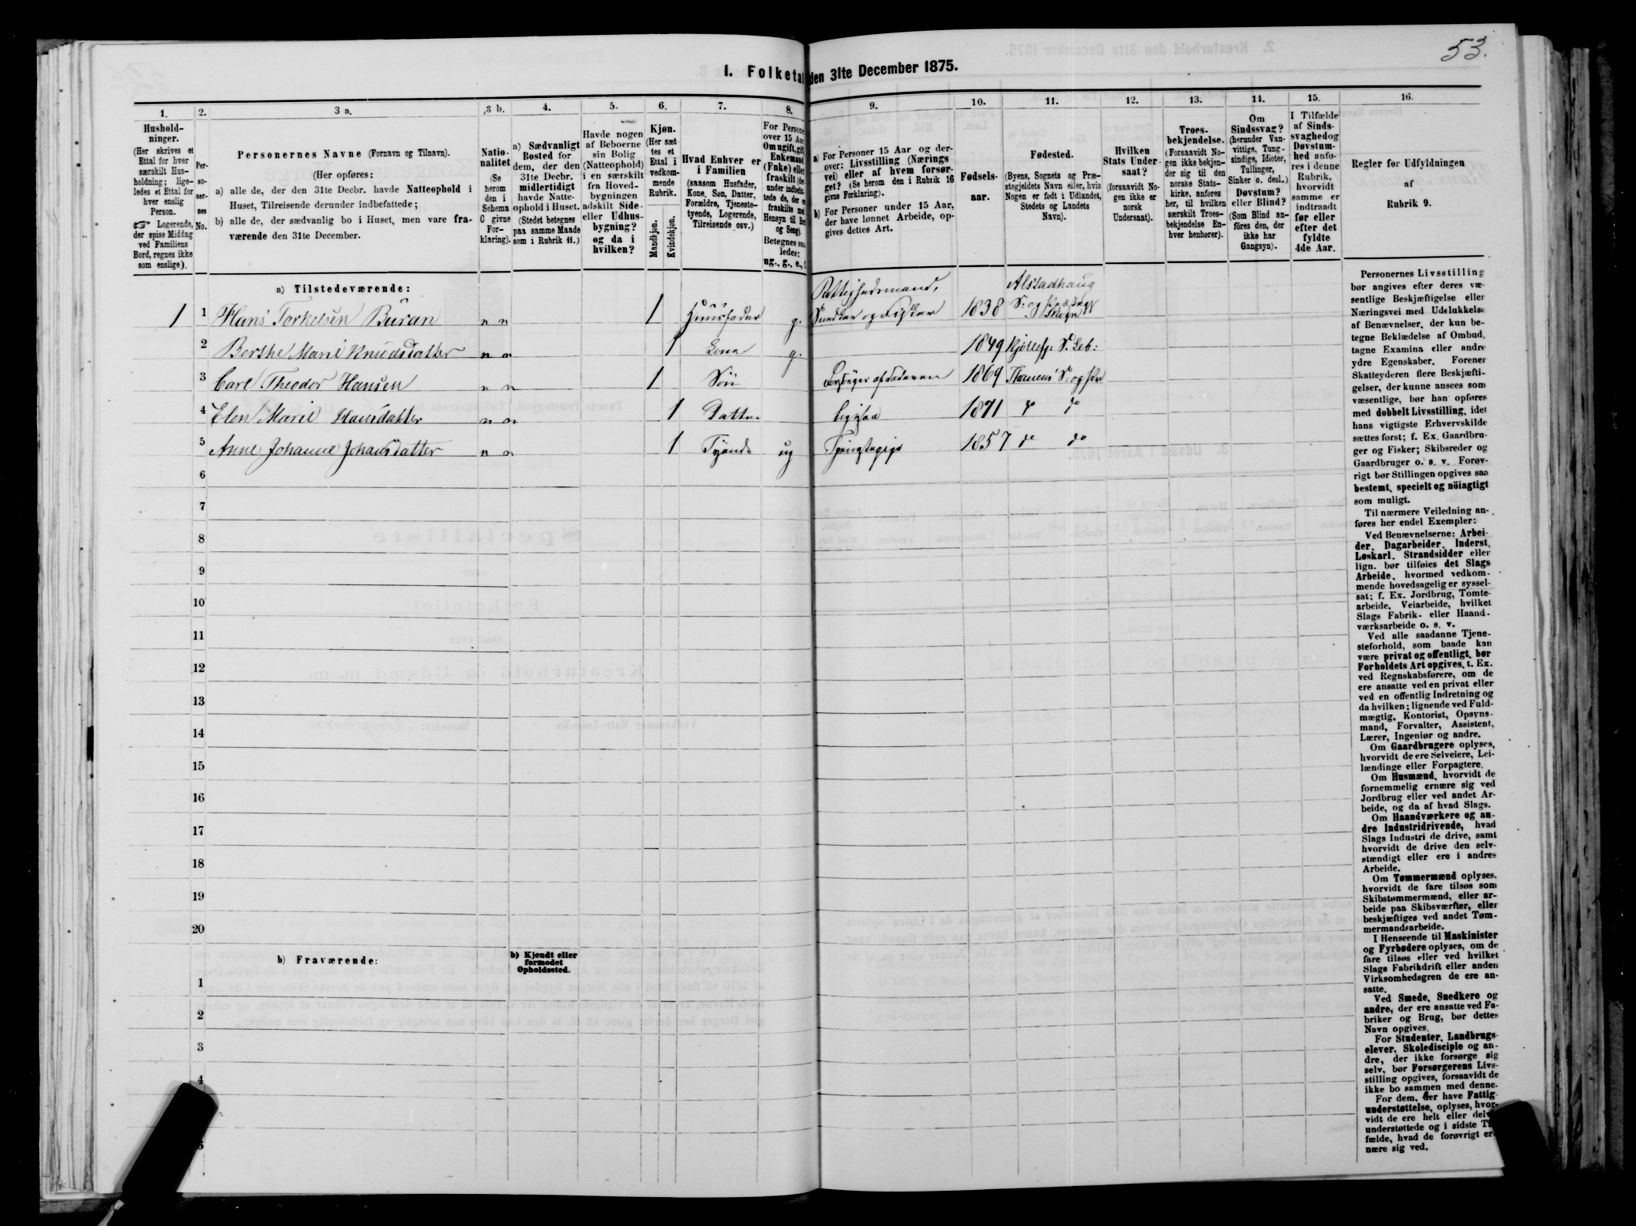 53.
I. Folketal den 31te December 1875.
1.
Hushold-
ninger.
(Her skrives et
Ettal for hver
særskilt Hus-
holdning; lige-
ledes et Ettal for
hver enslig
Person.
☞ Logerende,
der spise Middag
ved Familiens
Bord, regnes ikke
som enslige).
2.
Per-
so-
ner-
nes
No.
3 a.
Personernes Navne (Fornavn og Tilnavn).
(Her opføres:
a) alle de, der den 31te Decbr. havde Natteophold i
Huset, Tilreisende derunder indbefattede;
b) alle de, der sædvanlig bo i Huset, men vare fra-
værende den 31te December.
3 b.
Natio-
nalitet
(Se
herom
den i
Schema
C givne
For-
klaring).
4.
a) Sædvanligt
Bosted for
dem, der den
31te Decbr.
midlertidigt
havde Natte-
ophold i Huset.
(Stedet betegnes
paa samme Maade
som i Rubrik 11.)
5.
Havde nogen
af Beboerne
sin Bolig
(Natteophold)
i en særskilt
fra Hoved-
bygningen
adskilt Side-
eller Udhus-
bygning?
og da i
hvilken?
6.
Kjøn.
(Her sæt
tes et
Ettal i
vedkom-
mende
Rubrik.
Mandkjøn.
Kvindekjøn.
7.
Hvad Enhver er
i Familien
(saasom Husfader,
Kone, Søn, Datter,
Forældre, Tjeneste-
tyende, Logerende,
Tilreisende osv.)
8.
For Persone
over 15 Aar
Om ugift, gift,
Enkemand
(Enke) eller
fraskilt
under indbefat-
tede de, der
fraskilte
Hensyn til
og Seng).
Betegnes saa
ledes:
ug., g., e., f.
9.
a) For Personer 15 Aar og der-
over: Livsstilling (Nærings
vei) eller af hvem forsør-
get? (Se herom den i Rubrik 16
givne Forklaring).
b) For Personer under 15 Aar,
der have lønnet Arbeide, op-
gives dettes Art.
10.
Fødsels-
aar.
11.
Fødested.
(Byens, Sognets og Præ-
stegjeldets Navn eller, hvis
Nogen er født i Udlandet,
Stedets og Landets
Navn).
12.
Hvilken
Stats Under-
saat?
(forsaavidt No-
gen ikke er
norsk
Undersaat).
13.
Troes-
bekjendelse.
(Forsaavidt No-
gen ikke bekjen-
der sig til den
norske Stats-
kirke, anføres
her, til hvilken
særskilt Troes-
bekjendelse En-
hver henhører).
14.
Om
Sindssvag?
(herunder Van-
vittige, Tung-
sindige, Idioter,
Tullinger,
Sinker o. desl.)
Døvstum?
eller Blind?
(Som Blind an-
føres den, der
ikke har
Gangsyn).
15.
I Tilfælde
af Sinds-
svaghed og
Døvstum-
hed anfø-
res i denne
Rubrik,
hvorvidt
samme er
indtraadt
før eller
efter det
fyldte
4de Aar.
16.
Regler for Udfyldningen
af
Rubrik 9.
a) Tilstedeværende:
1 1 Hans Torkelsen Buran n n 1 Huusfader g. Snedker og Fisker 1838 Alstadhaug S: og
2 Berthe Marie Knudsdatter n n 1 Kone g. 1849
3 Carl Theodor Hansen n n 1 Søn Forsørges af Faderen 1869
4 Elen Marie Hansdatter n n 1 Datter ligesaa 1871 do do
5 Anne Johanne Johansdatter n n 1 Tyende ug Tjenestepige 1857 do do
6
7
8
9
10
11
12
13
14
15
16
17
18
19
20
b) Fraværende:
b) Kjendt eller
formodet
Opholdssted.
1
2
3
4
5
Personernes Livsstilling
bør angives efter deres væ-
sentlige Beskjæftigelse eller
Næringsvei med Udelukkelse
af Benævnelser, der kun be-
tegne Beklædelse af Ombud,
tagne Examina eller andre
ydre Egenskaber. Forener
Skatteyderen flere Beskjæfti-
gelser, der kunne ansees som
væsentlige, bør han opføres
med dobbelt Livsstilling, idet
hans vigtigste Erhvervskilde
sættes først; f. Ex. Gaardbru-
ger og Fisker; Skibsreder og
Gaardbruger o. s. v. Forøv-
rigt bør Stillingen opgives saa
bestemt, specielt og nöiagtigt
som muligt.
Til nærmere Veiledning an-
føres her endel Exempler:
Ved Benævnelserne: Arbei-
der, Dagarbeider, Inderst,
Løskarl, Strandsidder eller
lign. bør tilføies det Slags
Arbeide, hvormed vedkom-
mende hovedsagelig er syssel-
sat; f. Ex. Jordbrug, Tomte-
arbeide, Veiarbeide, hvilket
Slags Fabrik- eller Haand-
værksarbeide o. s. v.
Ved alle saadanne Tjene-
steforhold, som baade kan
være privat og offentligt, bør
Forholdets Art opgives, t. Ex.
ved Regnskabsførere, om de
ere ansatte ved en privat eller
ved en offentlig Indretning og
da hvilken; lignende ved Fuld-
mægtig, Kontorist, Opsyns-
mand, Forvalter, Assistent,
Lærer, Ingeniør og andre.
Om Gaardbrugere oplyses,
hvorvidt de ere Selveiere, Lei-
lændinge eller Forpagtere.
Om Husmænd, hvorvidt de
fornemmelig ernære sig ved
Jordbrug eller ved andet Ar-
beide, og da af hvad Slags.
Om Haandværkere og an-
dre Industridrivende, hvad
Slags Industri de drive, samt
hvorvidt de drive den selv-
stændigt eller ere i andres
Arbeide.
Om Tømmermænd oplyses,
hvorvidt de fare tilsøs som
Skibstømmermænd, eller ar-
beide paa Skibsværfter, eller
beskjæftiges ved andet Tøm-
mermandsarbeide.
I Henseende til Maskinister
og Fyrbødere oplyses, om de
fare tilsøs eller ved hvilket
Slags Fabrikdrift eller anden
Virksomhedsgren de ere an-
satte.
Ved Smede, Snedkere og
andre, der ere ansatte ved Fa-
briker og Brug, bør dettes
Navn opgives.
For Studenter, Landbrugs-
elever, Skoledisciple og an-
dre, der ikke forsørge sig
selv, bør Forsørgerens Livs-
stilling opgives, forsaavidt de
ikke bo sammen med denne.
For dem, der have Fattig-
understøttelse, oplyses, hvor-
vidt de ere helt eller delvis
understøttede og i sidste Til
fælde, hvad de forøvrigt er-
nære sig ved.